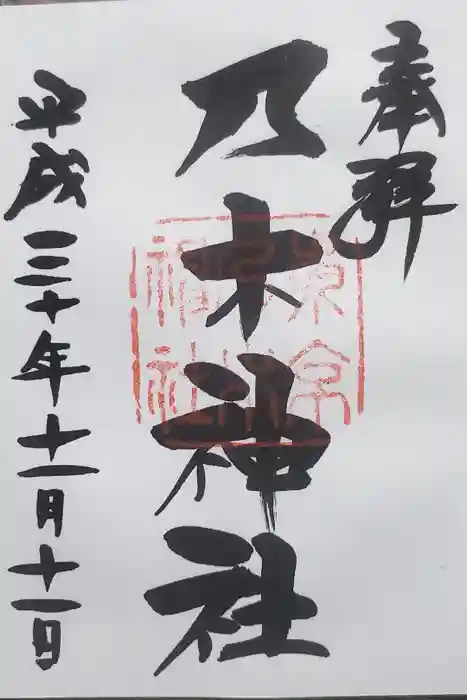 奉拝
乃木神社
平成三十年十一月十一日